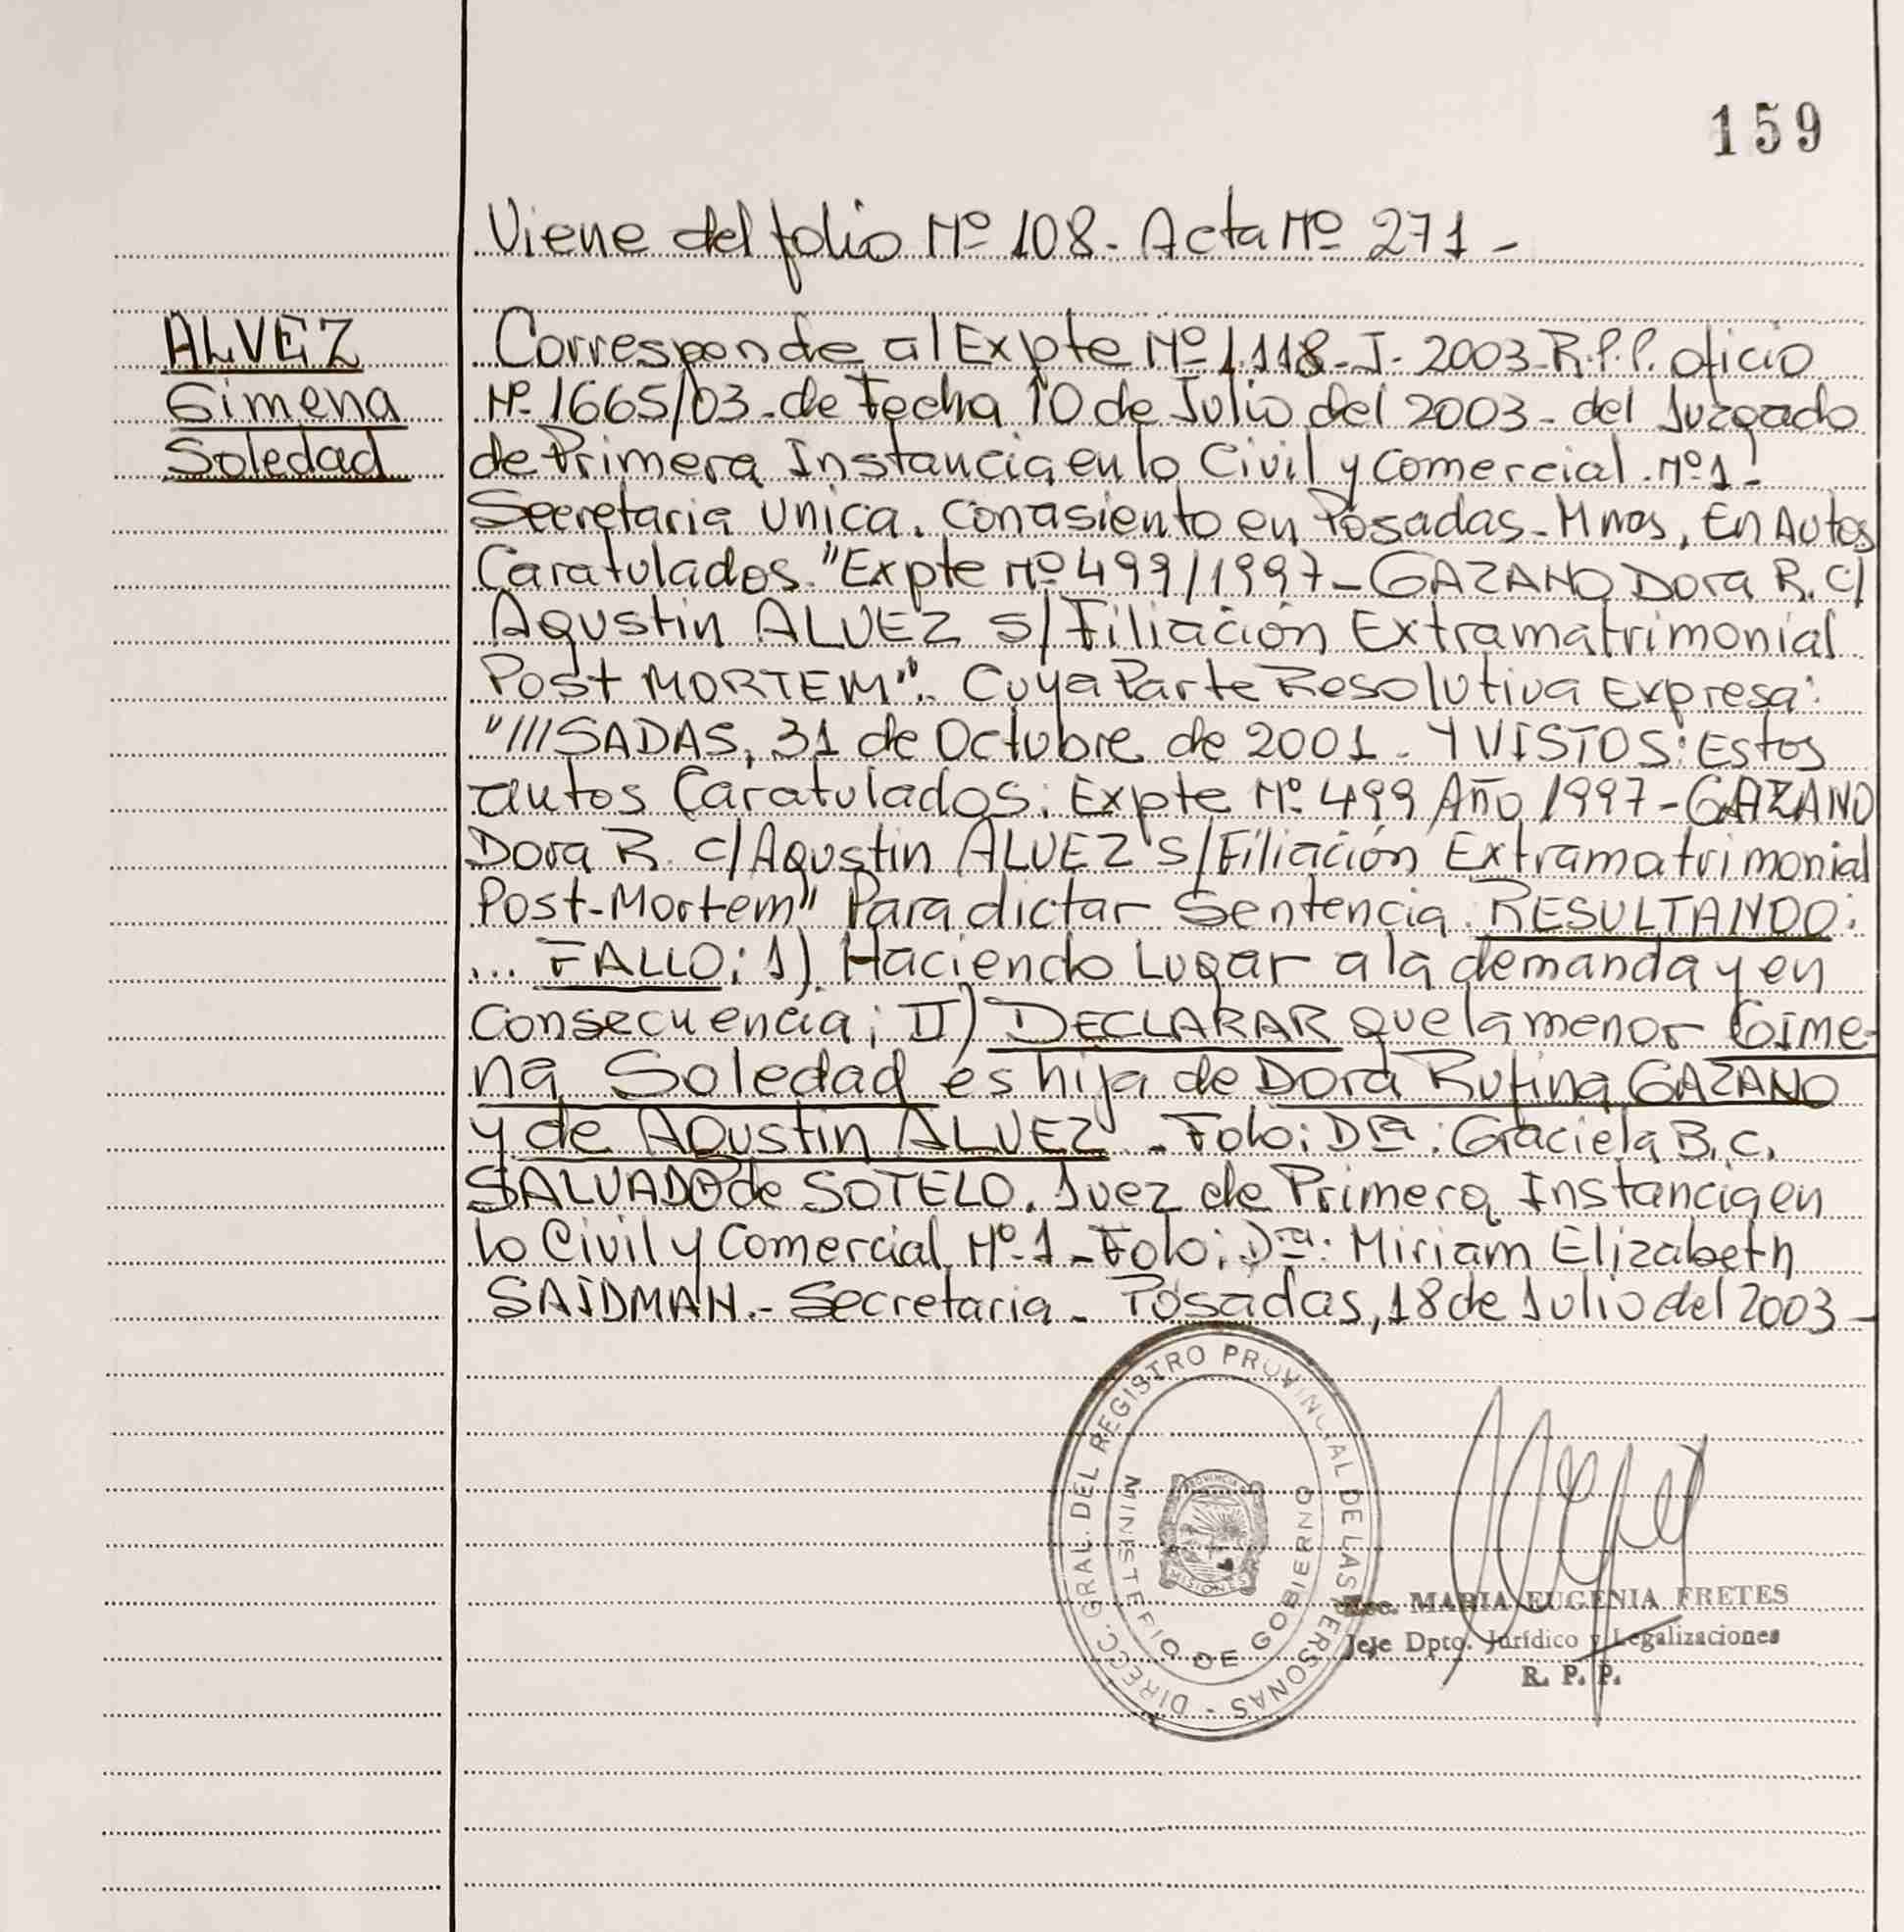 159
Viene del folio Nº 108- Acta Nº 271-
ALVEZ
Gimena
Soledad
Corresponde al Expte Nº 1.118-J-2003-R.P.P. oficio
Nº 1665/03-de Fecha 10 de Julio del 2003- del Juzgado
de Primera Instancia en lo Civil y Comercial Nº 1-
Secretaria Unica. con asiento en Posadas-Mnes, En Autos
Caratulados "Expte Nº 499/1997-GAZANO Dora R. C/
Agustin ALVEZ S/Filiación Extramatrimonial
Post MORTEM". Cuya Parte Resolutiva Expresa:
"///SADAS, 31 de Octubre de 2001. Y VISTOS: Estos
autos Caratulados: Expte Nº 499 Año 1997-GAZANO
Dora R. c/Agustin ALVEZ S/Filiación Extramatrimonial
Post-Mortem" Para dictar Sentencia. RESULTANDO:
... FALLO: 1) Haciendo Lugar a la demanda y en
Consecuencia; II) DECLARAR que la menor Gime-
na Soledad es hija de Dora Rufina GAZANO
y de Agustin ALVEZ -Fdo: Dra: Graciela B.C.
SALVADO de SOTELO. Juez de Primera Instancia en
lo Civil y Comercial Nº 1-Fdo: Dra: Miriam Elizabeth
SAIDMAN.- Secretaria- Posadas, 18 de Julio del 2003-
DIRECC. GRAL. DEL REGISTRO PROVINCIAL DE LAS PERSONAS -
MINISTERIO DE GOBIERNO
PROVINCIA
MISIONES
MARIA EUGENIA FRETES
Jefe Dpto. Jurídico y Legalizaciones
R. P. P.